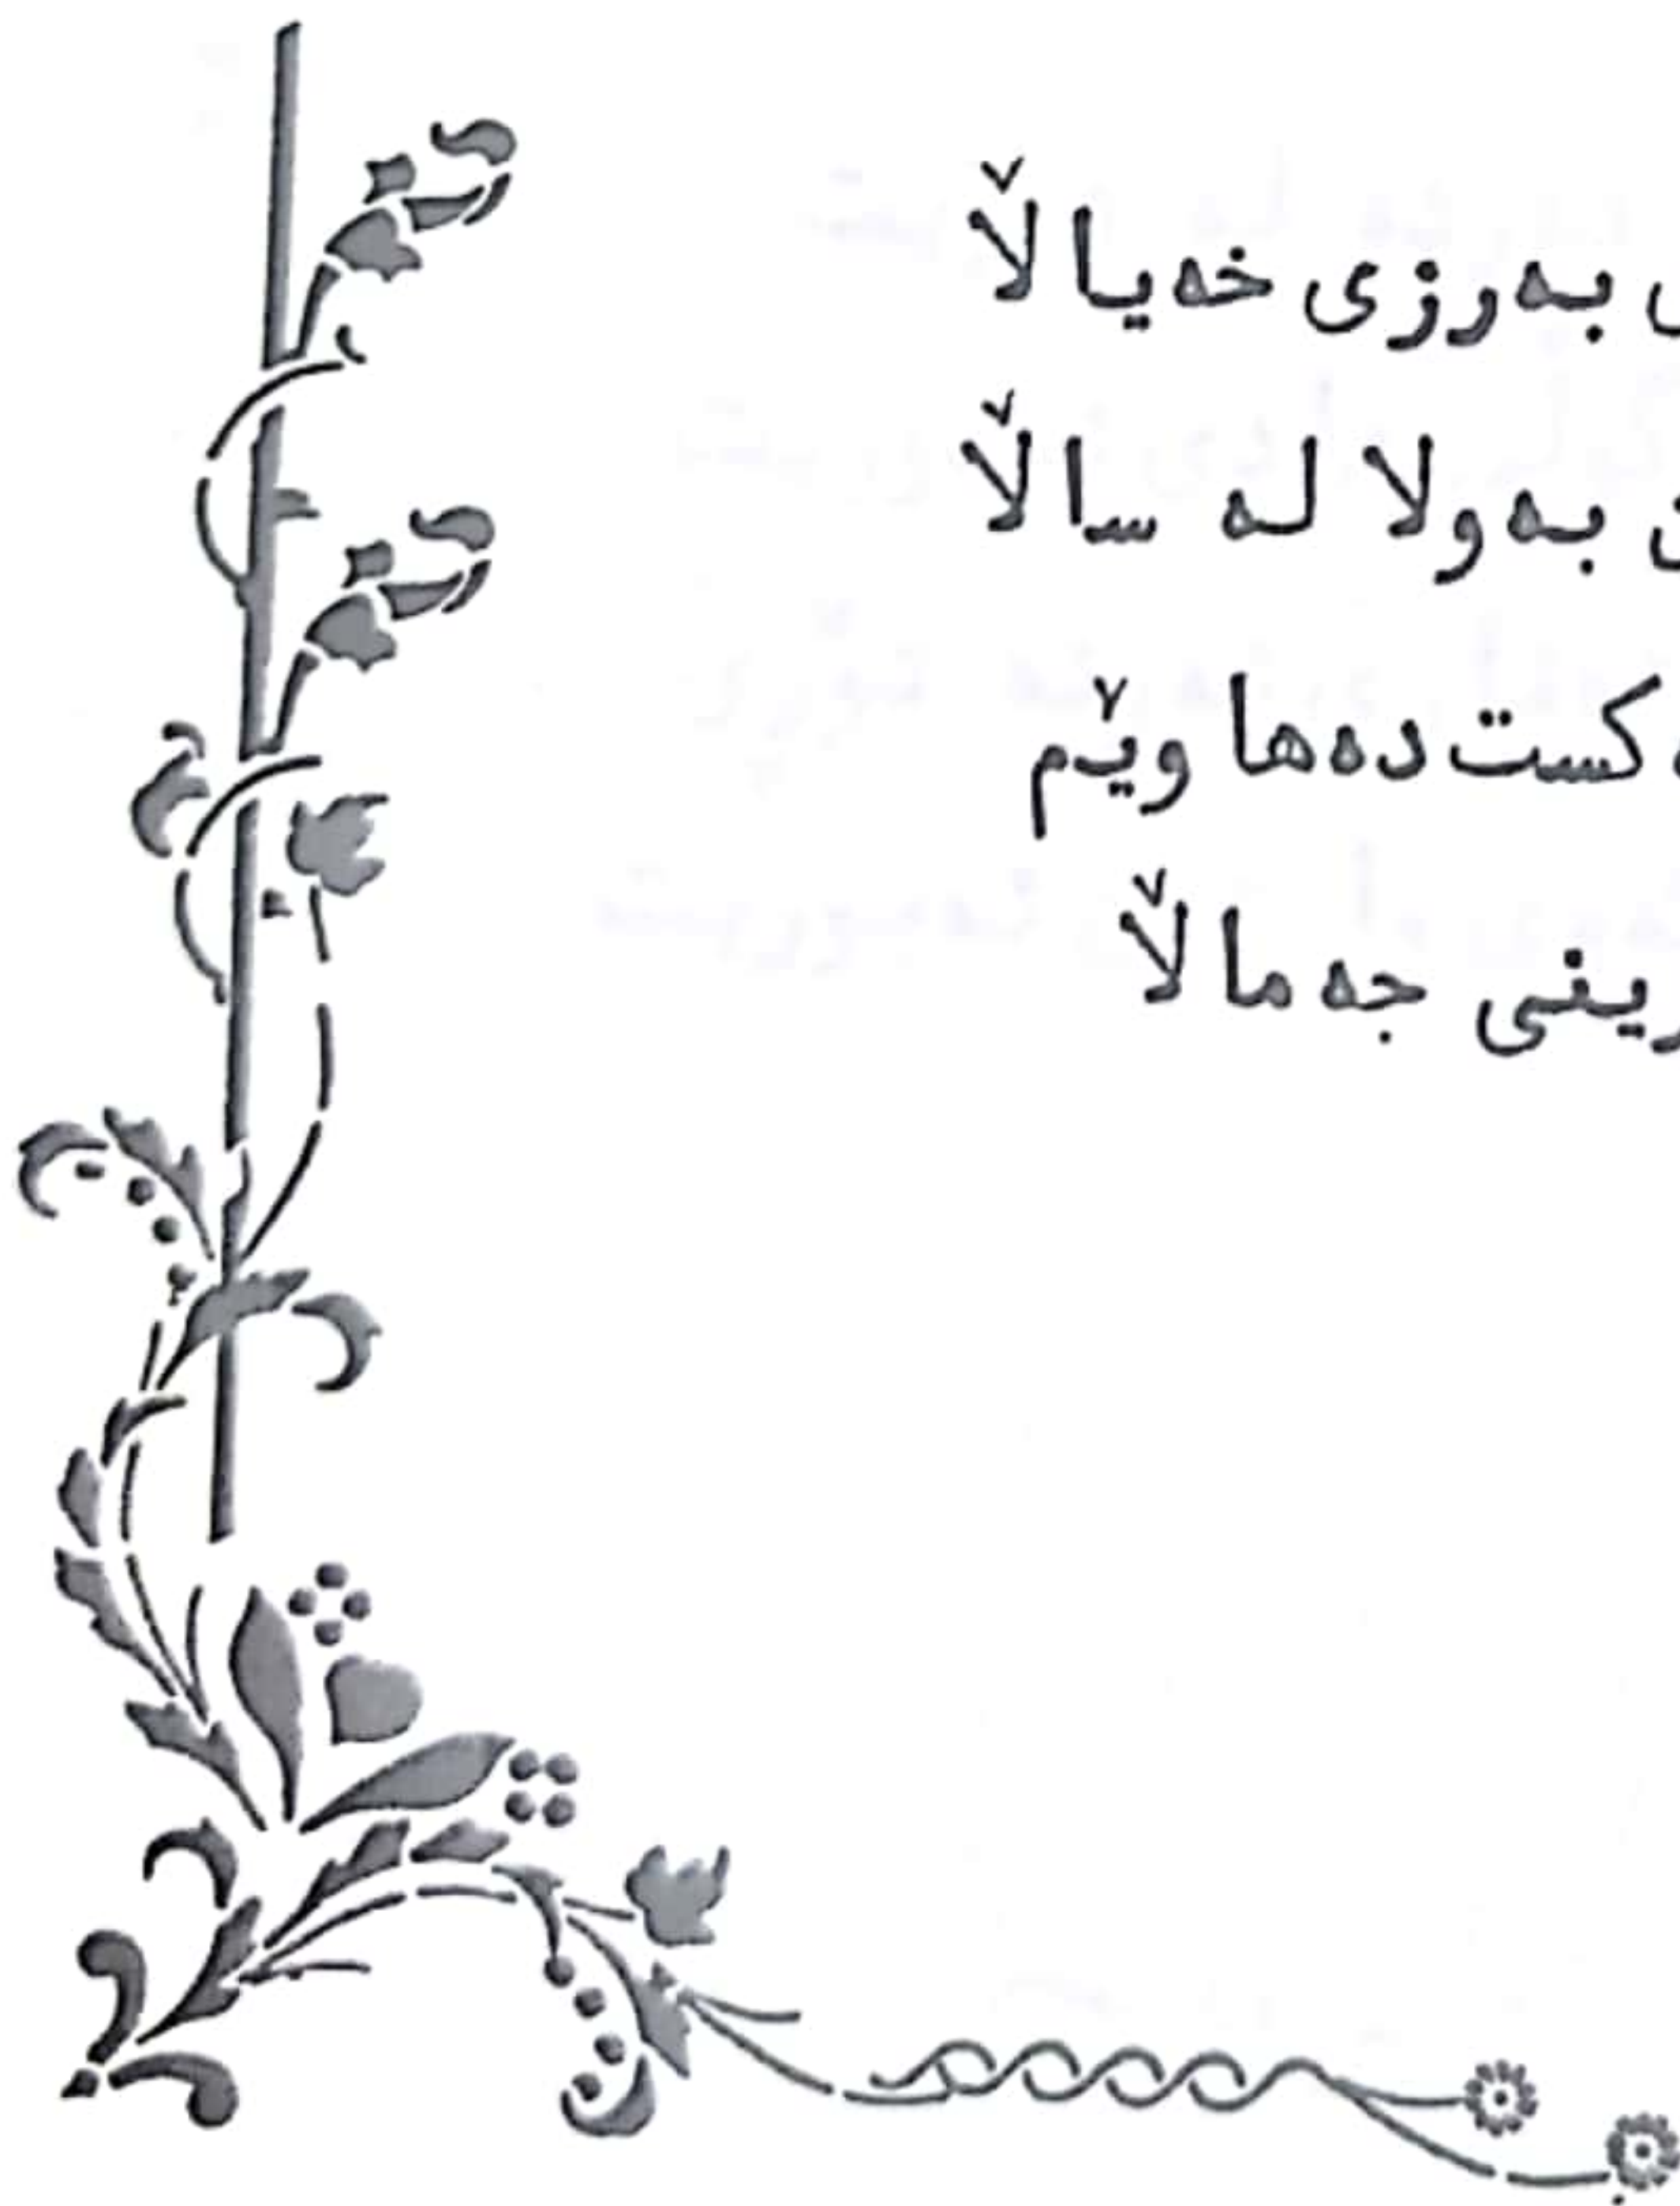 بەرزی خەیاڵا
بەولا لە ساڵا
کست دەها وێم
جەماڵا